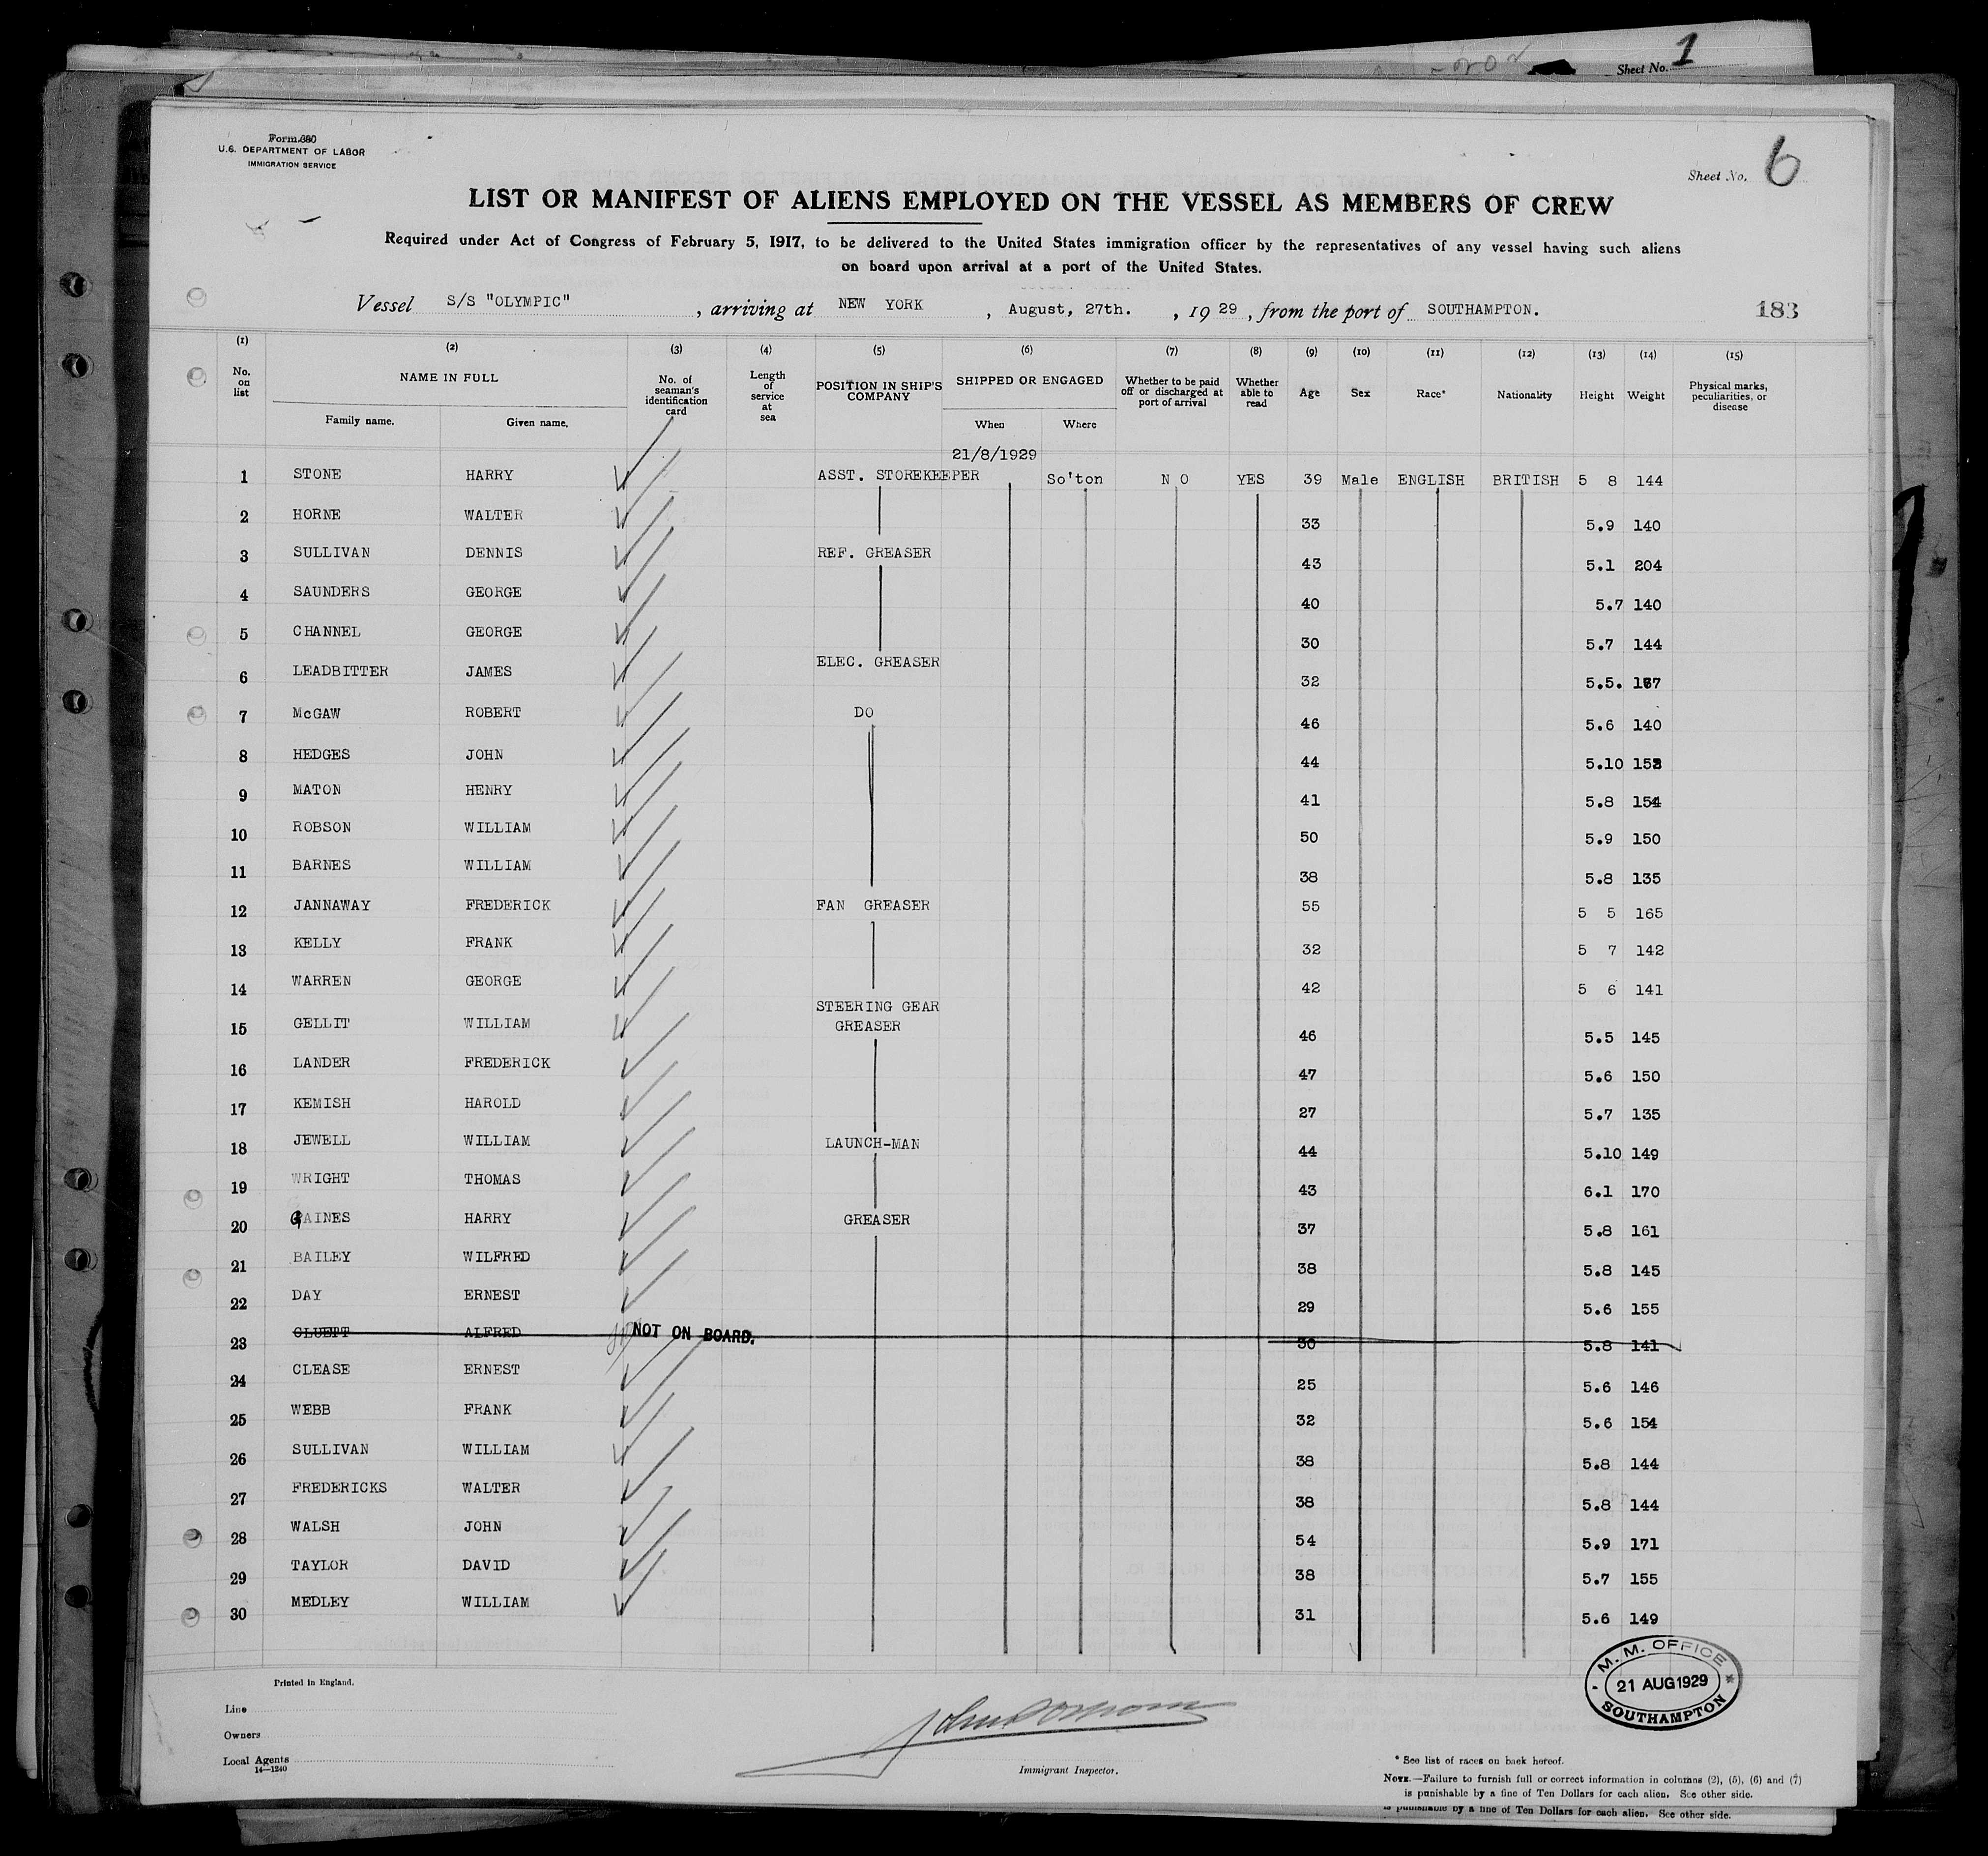 Sheet No. 1
Form 680
U.S. DEPARTMENT OF LABOR
IMMIGRATION SERVICE
Sheet No. 6
LIST OR MANIFEST OF ALIENS EMPLOYED ON THE VESSEL AS MEMBERS OF CREW
Required under Act of Congress of February 5, 1917, to be delivered to the United States immigration officer by the representatives of any vessel having such aliens
on board upon arrival at a port of the United States.
Vessel S/S "OLYMPIC" , arriving at NEW YORK , August, 27th. , 19 29 , from the port of SOUTHAMPTON. 183
(1) (2) (3) (4) (5) (6) (7) (8) (9) (10) (11) (12) (13) (14) (15)
No. on list NAME IN FULL No. of seaman's identification card Length of service at sea POSITION IN SHIP'S COMPANY SHIPPED OR ENGAGED Whether to be paid off or discharged at port of arrival Whether able to read Age Sex Race* Nationality Height Weight Physical marks, peculiarities, or disease
Family name. Given name. When Where
21/8/1929
1 STONE HARRY ASST. STOREKEEPER So'ton N O YES 39 Male ENGLISH BRITISH 5 8 144
2 HORNE WALTER 33 5.9 140
3 SULLIVAN DENNIS REF. GREASER 43 5.1 204
4 SAUNDERS GEORGE 40 5.7 140
5 CHANNEL GEORGE 30 5.7 144
6 LEADBITTER JAMES ELEC. GREASER 32 5.5.
7 McGAW ROBERT DO 46 5.6 140
8 HEDGES JOHN 44 5.10
9 MATON HENRY 41 5.8 154
10 ROBSON WILLIAM 50 5.9 150
11 BARNES WILLIAM 38 5.8 135
12 JANNAWAY FREDERICK FAN GREASER 55 5 5 165
13 KELLY FRANK 32 5 7 142
14 WARREN GEORGE 42 5 6 141
15 GELLIT WILLIAM STEERING GEAR GREASER 46 5.5 145
16 LANDER FREDERICK 47 5.6 150
17 KEMISH HAROLD 27 5.7 135
18 JEWELL WILLIAM LAUNCH-MAN 44 5.10 149
19 WRIGHT THOMAS 43 6.1 170
20 GAINES HARRY GREASER 37 5.8 161
21 BAILEY WILFRED 38 5.8 145
22 DAY ERNEST 29 5.6 155
23 CLUETT ALFRED NOT ON BOARD. 30 5.8 141
24 CLEASE ERNEST 25 5.6 146
25 WEBB FRANK 32 5.6 154
26 SULLIVAN WILLIAM 38 5.8 144
27 FREDERICKS WALTER 38 5.8 144
28 WALSH JOHN 54 5.9 171
29 TAYLOR DAVID 38 5.7 155
30 MEDLEY WILLIAM 31 5.6 149
M. M. OFFICE
21 AUG 1929
SOUTHAMPTON
Printed in England.
Line
Owners
Local Agents
14—1240
Immigrant Inspector.
* See list of races on back hereof.
NOTE.—Failure to furnish full or correct information in columns (2), (5), (6) and (7)
is punishable by a fine of Ten Dollars for each alien. See other side.
is punishable by a fine of Ten Dollars for each alien. See other side.